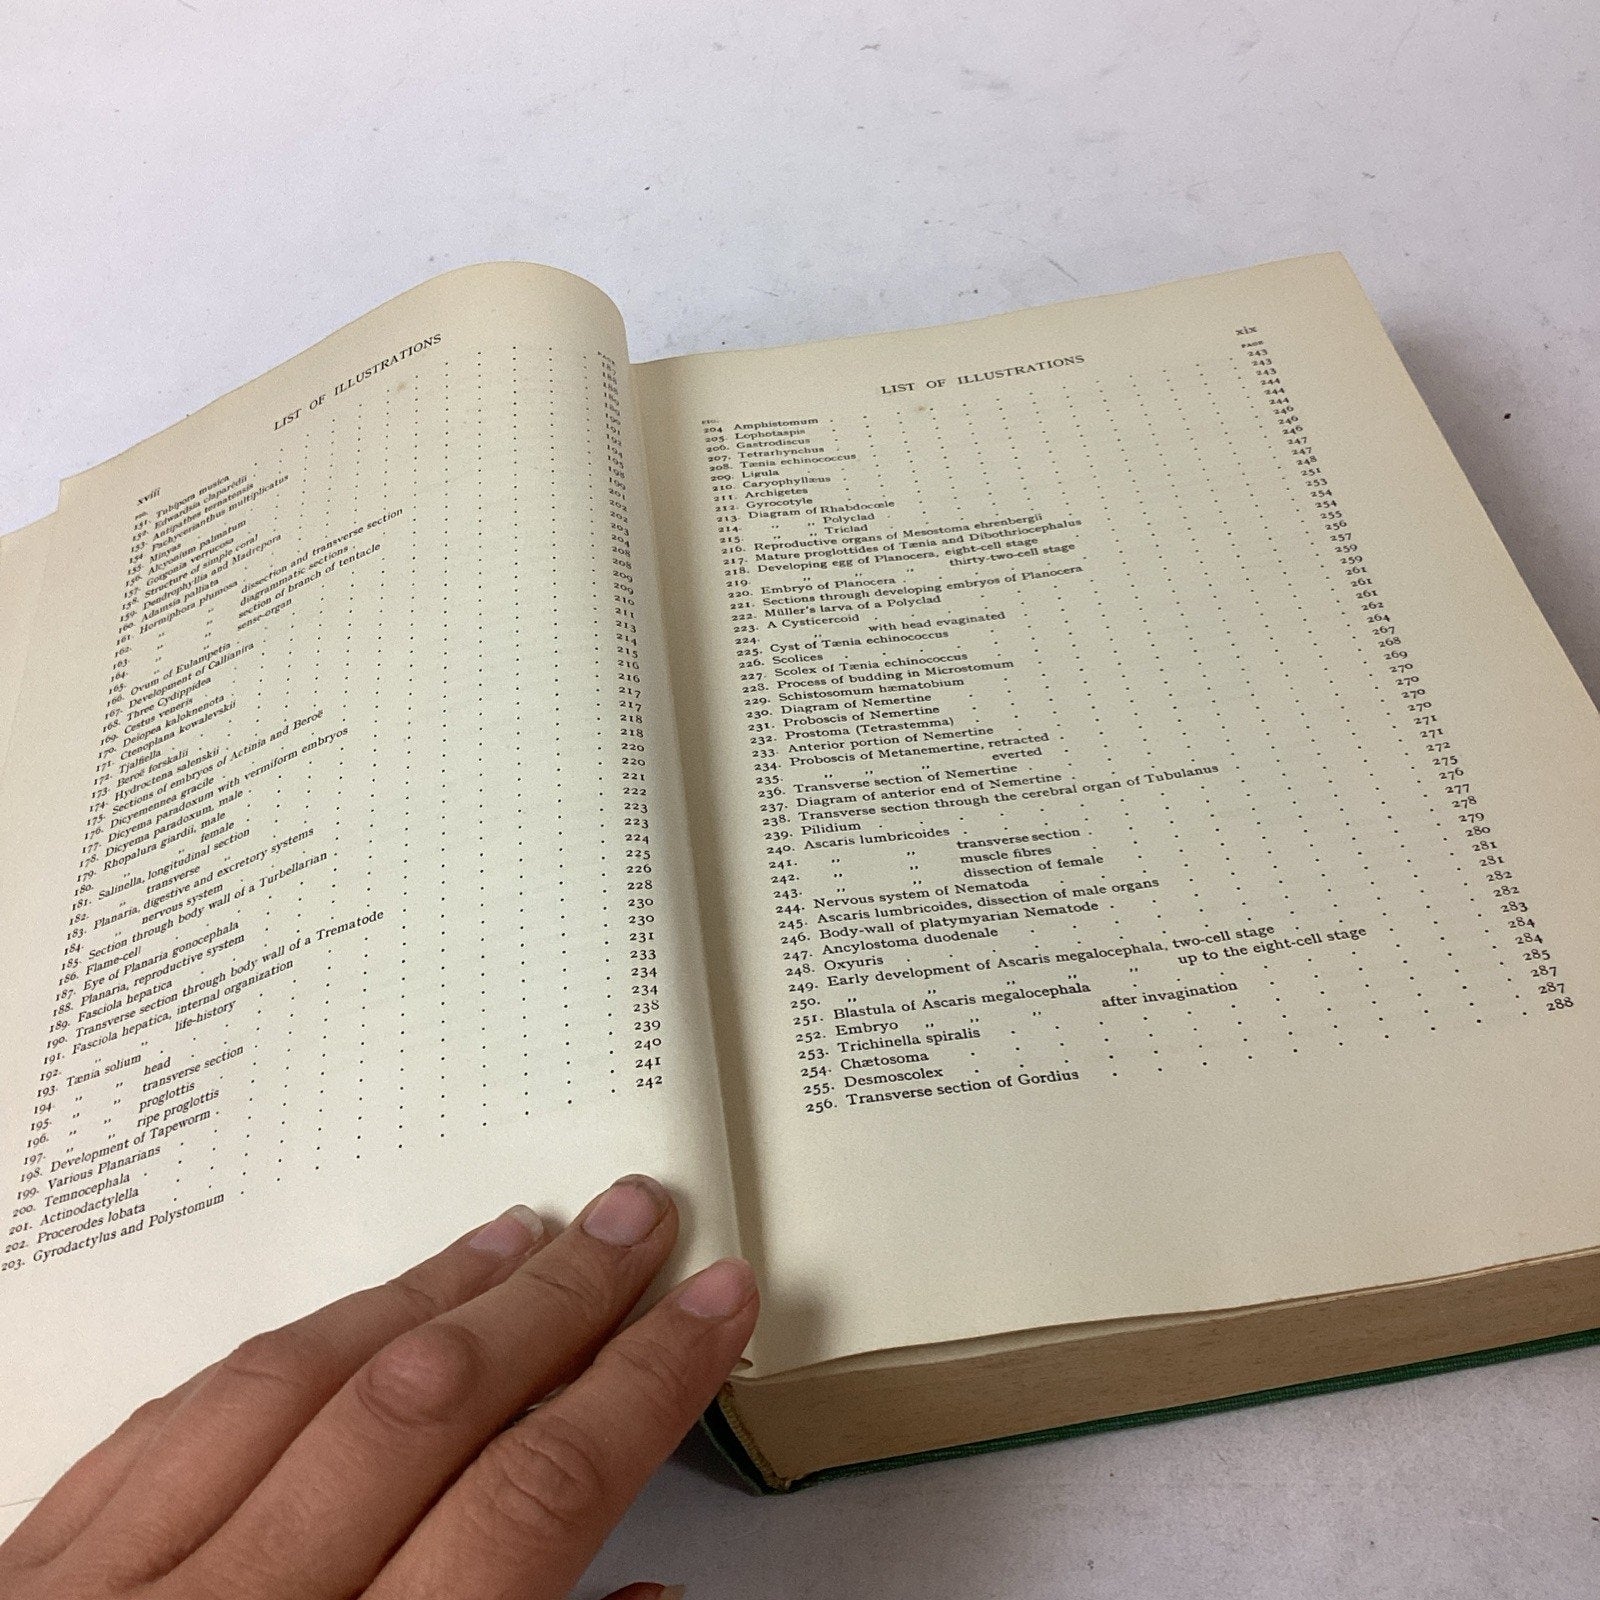 xviii
LIST OF ILLUSTRATIONS
PAGE
Tubipora musica
151. Edwardsia claparèdii
152. Antipathes ternatensis
153. Pachycerianthus multiplicatus
154. Minyas
155. Alcyonium palmatum
156. Gorgonia verrucosa
157. Structure of simple coral
158. Dendrophyllia and Madrepora
159. Adamsia palliata
160. Hormiphora plumosa
161. ,, ,, dissection and transverse section
162. ,, ,, diagrammatic sections
163. ,, ,, section of branch of tentacle
164. ,, ,, sense-organ
165. Ovum of Eulampetia
166. Development of Callianira
167. Three Cydippidea
168. Cestus veneris
169. Deiopea kaloknenota
170. Ctenoplana kowalevskii
171. Tjalfiella
172. Beroë forskalii
173. Hydroctena salenskii
174. Sections of embryos of Actinia and Beroë
175. Dicyemennea gracile
176. Dicyema paradoxum with vermiform embryos
177. Dicyema paradoxum, male
178. Rhopalura giardii, male
179. ,, ,, female
180. Salinella, longitudinal section
181. ,, transverse ,,
182. Planaria, digestive and excretory systems
183. ,, nervous system
184. Section through body wall of a Turbellarian
185. Flame-cell
186. Eye of Planaria gonocephala
187. Planaria, reproductive system
188. Fasciola hepatica
189. Transverse section through body wall of a Trematode
190. Fasciola hepatica, internal organization
191. ,, ,, life-history
192. Tænia solium
193. ,, ,, head
194. ,, ,, transverse section
195. ,, ,, proglottis
196. ,, ,, ripe proglottis
197. Development of Tapeworm
198. Various Planarians
199. Temnocephala
200. Actinodactylella
201. Procerodes lobata 241
202. Gyrodactylus and Polystomum 242
203.
LIST OF ILLUSTRATIONS
xix
FIG.
PAGE
204. Amphistomum 243
205. Lophotaspis 243
206. Gastrodiscus 243
207. Tetrarhynchus 244
208. Tænia echinococcus 244
209. Ligula 244
210. Caryophyllæus 246
211. Archigetes 246
212. Gyrocotyle 246
213. Diagram of Rhabdocœle 247
214. ,, ,, Polyclad 247
215. ,, ,, Triclad 248
216. Reproductive organs of Mesostoma ehrenbergii 251
217. Mature proglottides of Tænia and Dibothriocephalus 253
218. Developing egg of Planocera, eight-cell stage 254
219. ,, ,, ,, thirty-two-cell stage 254
220. Embryo of Planocera 255
221. Sections through developing embryos of Planocera 256
222. Müller's larva of a Polyclad 257
223. A Cysticercoid 259
224. ,, with head evaginated 259
225. Cyst of Tænia echinococcus 261
226. Scolices 261
227. Scolex of Tænia echinococcus 261
228. Process of budding in Microstomum 262
229. Schistosomum hæmatobium 264
230. Diagram of Nemertine 267
231. Proboscis of Nemertine 268
232. Prostoma (Tetrastemma) 269
233. Anterior portion of Nemertine 270
234. Proboscis of Metanemertine, retracted 270
235. ,, ,, ,, everted 270
236. Transverse section of Nemertine 270
237. Diagram of anterior end of Nemertine 271
238. Transverse section through the cerebral organ of Tubulanus 271
239. Pilidium 272
240. Ascaris lumbricoides 275
241. ,, ,, transverse section 276
242. ,, ,, muscle fibres 277
243. ,, ,, dissection of female 278
244. Nervous system of Nematoda 279
245. Ascaris lumbricoides, dissection of male organs 280
246. Body-wall of platymyarian Nematode 281
247. Ancylostoma duodenale 281
248. Oxyuris 282
249. Early development of Ascaris megalocephala, two-cell stage 282
250. ,, ,, ,, ,, up to the eight-cell stage 283
251. Blastula of Ascaris megalocephala 284
252. Embryo ,, ,, ,, after invagination 284
253. Trichinella spiralis 285
254. Chætosoma 287
255. Desmoscolex 287
256. Transverse section of Gordius 288